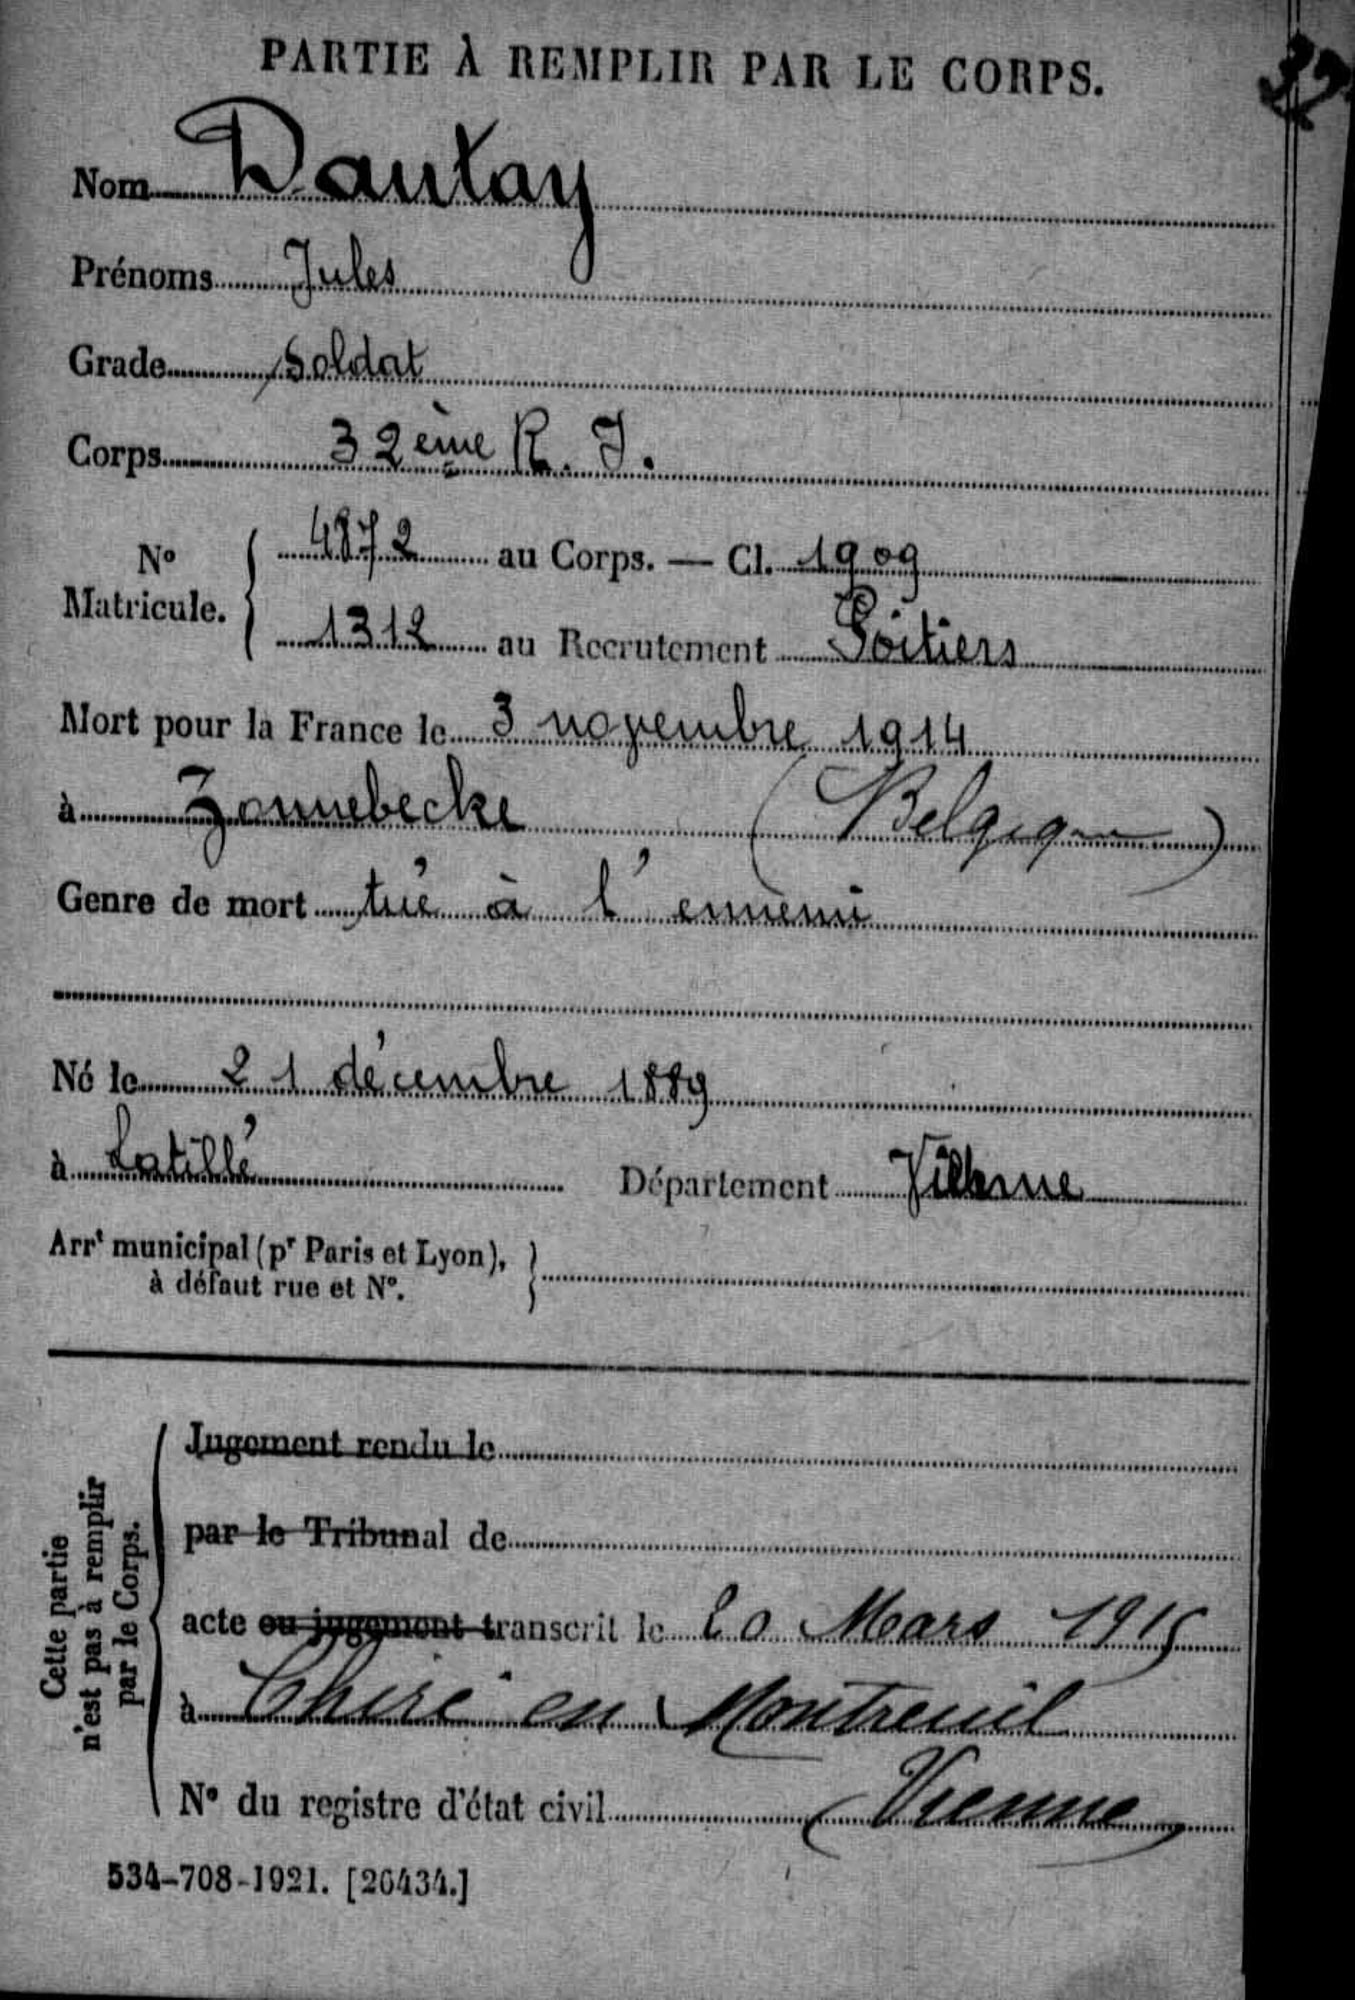 PARTIE À REMPLIR PAR LE CORPS.
Nom Dautay
Prénoms Jules
Grade Soldat
Corps 32ème R. I.
N° Matricule. 4872 au Corps. — Cl. 1909
1312 au Recrutement Poitiers
Mort pour la France le 3 novembre 1914
à Zonnebecke (Belgique)
Genre de mort tué à l'ennemi
Né le 21 décembre 1889
à Latillé Département Vienne
Arrt municipal (pr Paris et Lyon),
à défaut rue et N°.
Cette partie
n'est pas à remplir
par le Corps.
Jugement rendu le
par le Tribunal de
acte ou jugement transcrit le 20 Mars 1915
à Chiré en Montreuil
N° du registre d'état civil (Vienne)
534-708-1921. [26434.]